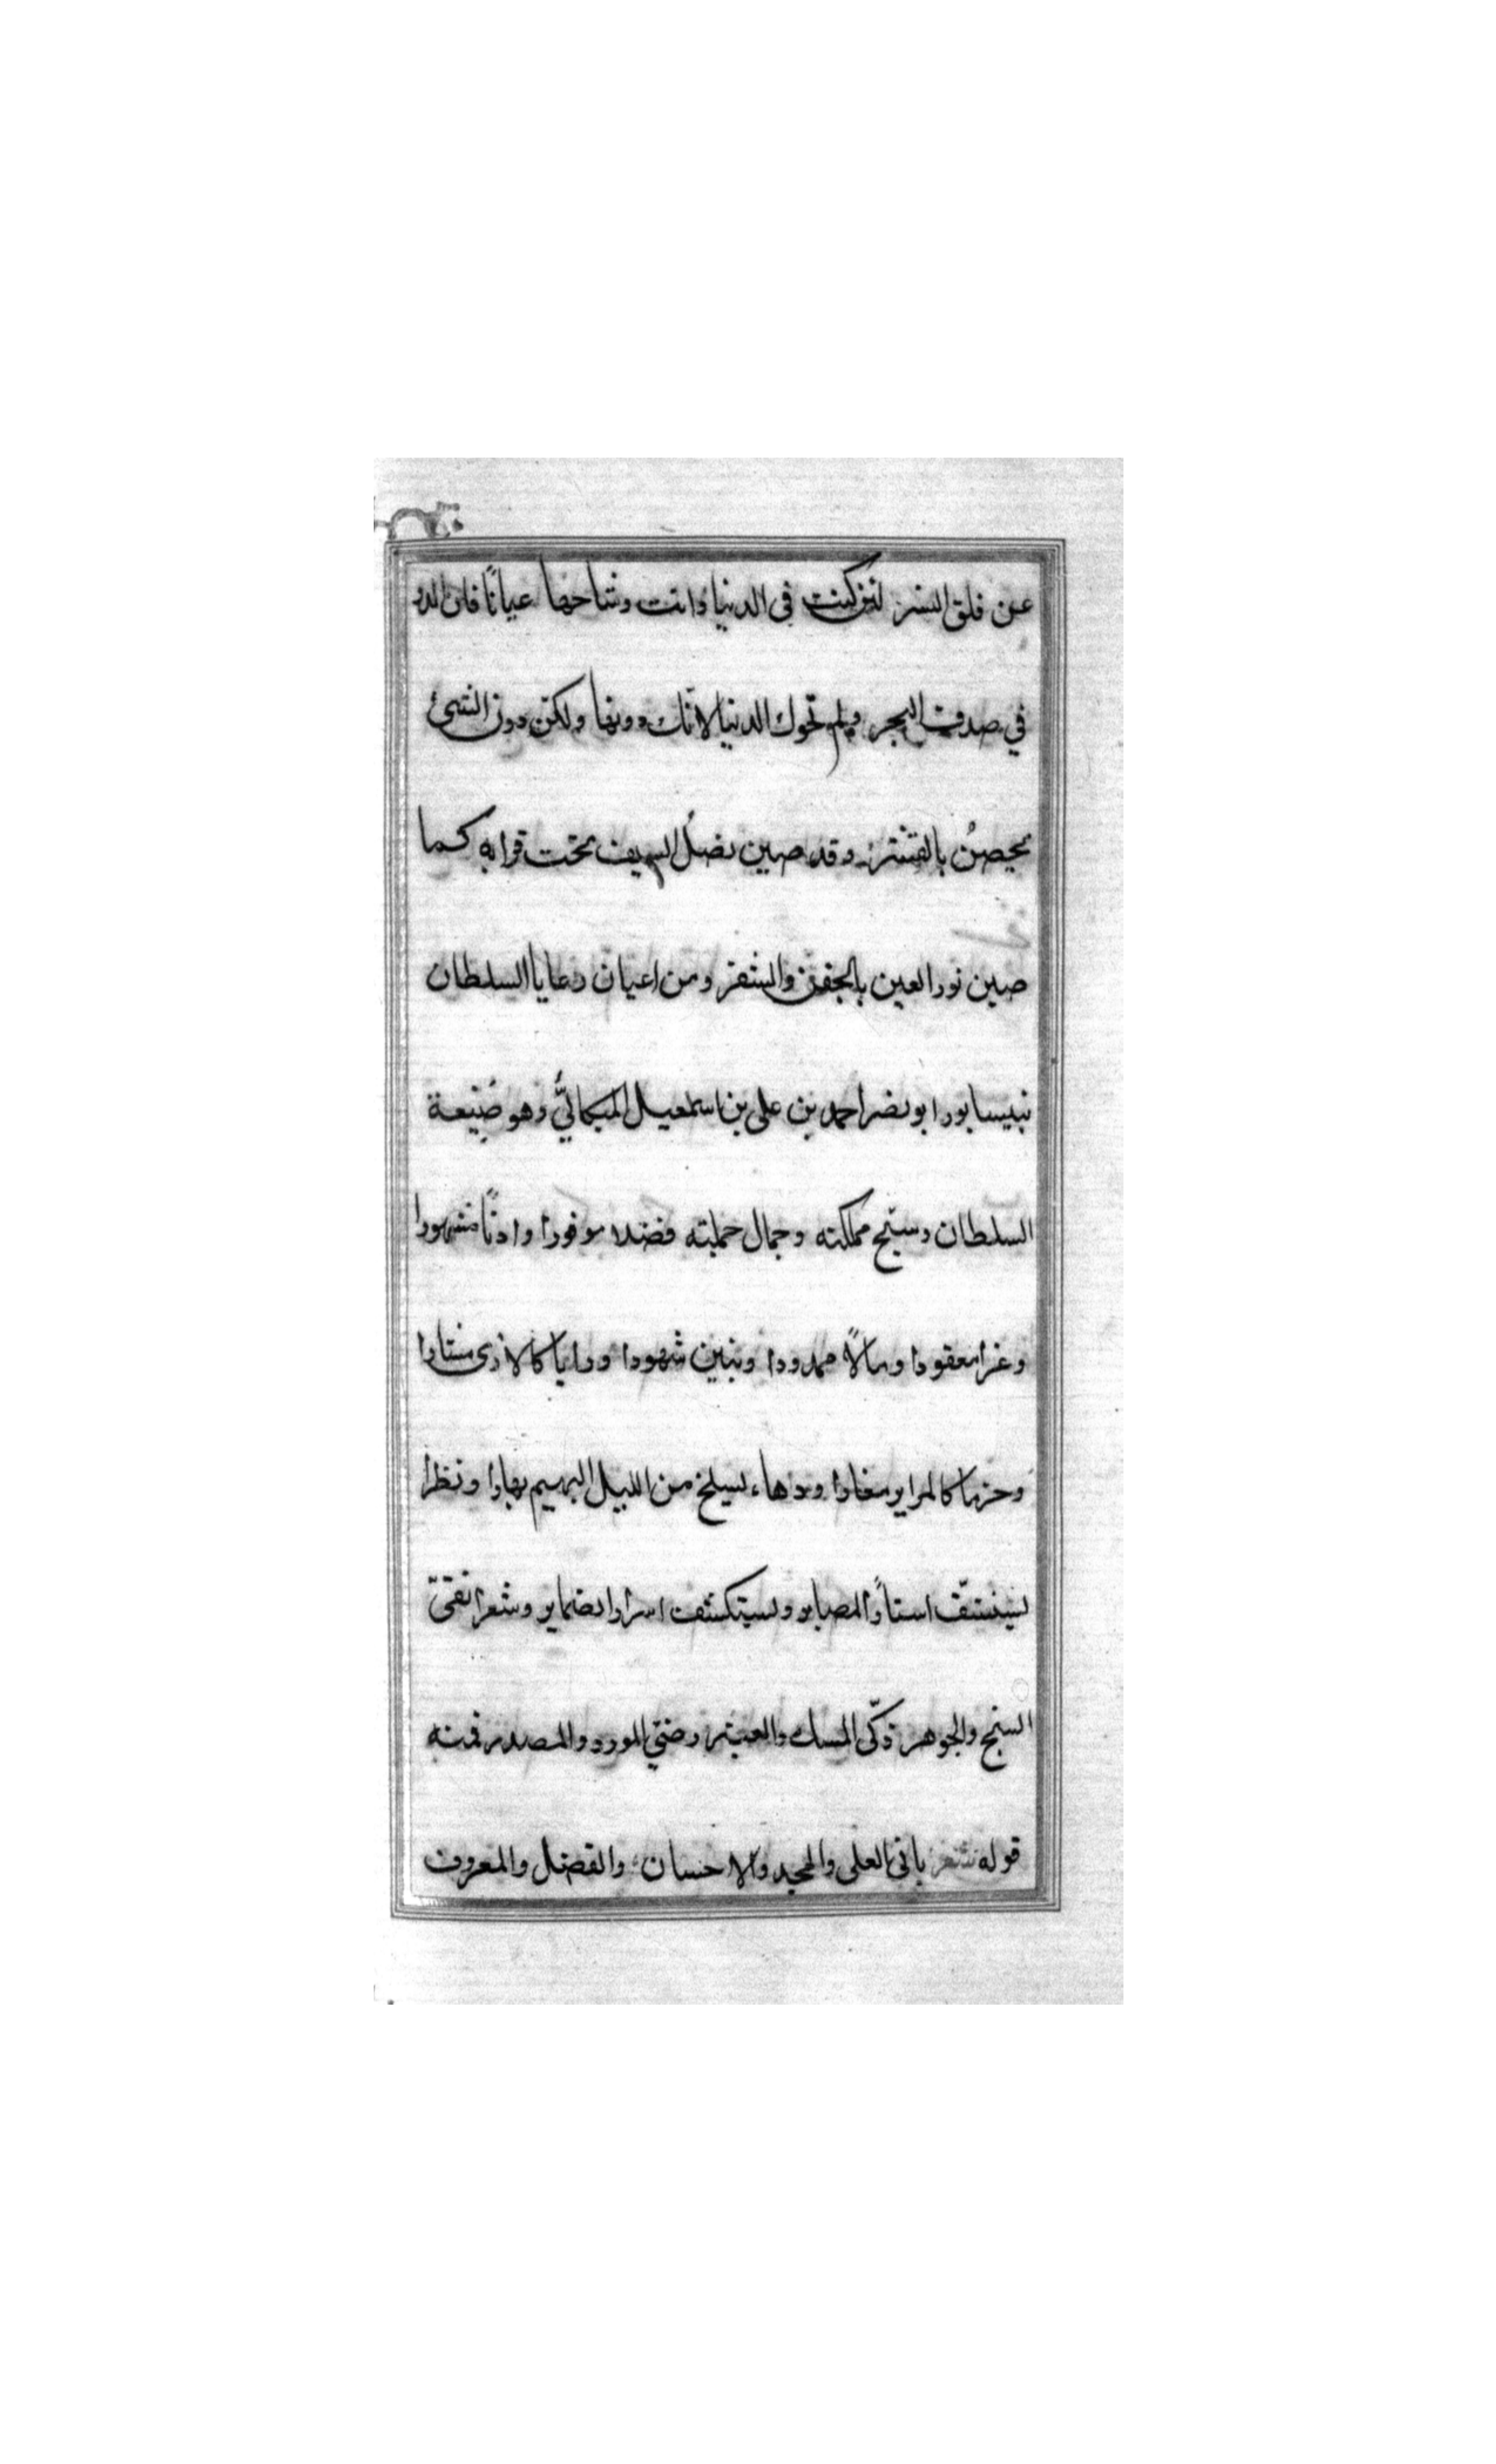 عن فلق البشر لئن كنت في الدنيا وانت وشاحها عيانا فان الدر
في صدف البحر ولم تحوك الدنيا لانّك دونها ولكن دون الشئ
يحصنُ بالقشر وقد صين نصلُ السيف تحت قرابه كما
صين نور العين بالجفن والشفر ومن اعيان رعايا السلطان
بنيسابور ابو نصر احمد بن على بن اسمعيل الميكاليُّ وهو صنيعة
السلطان وسنح مملكته وجمال جملته فضلا موفورا وادبًا مشهورا
وعزا معقودا ومالاً ممدودا وبنين شهودا ورايا كالارى مشتارا
وحزما كالمراير مغارا ودهاء يسلخ من الليل البهيم نهارا ونظرا
يستشفّ استار المصاير ويستكشف اسرار الضماير وشعرا نقىّ
السنح والجوهر ذكّى المسك والعنبر رضىّ المورد والمصدر فمنه
قوله شعر بانى العلى والمجد والاحسان والفضل والمعروف